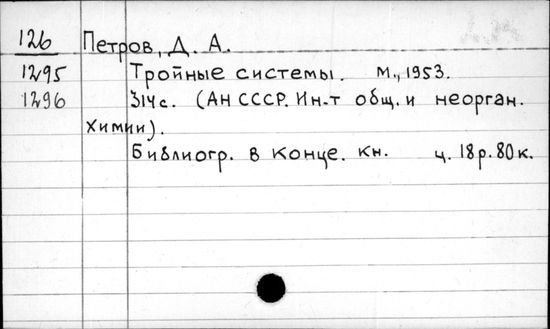 126 Петров, Д. А.
1295 Тройные системы. М., 1953.
1296 314с. (АН СССР. Ин-т общ. и неорган.
химии).
Библиогр. в конце. кн. ц. 18р. 80к.